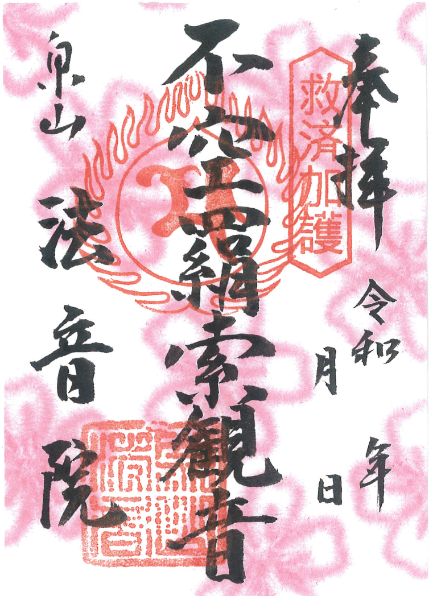 奉拝
令和　年
月　日
救済加護
不空羂索観音
泉山
法音院